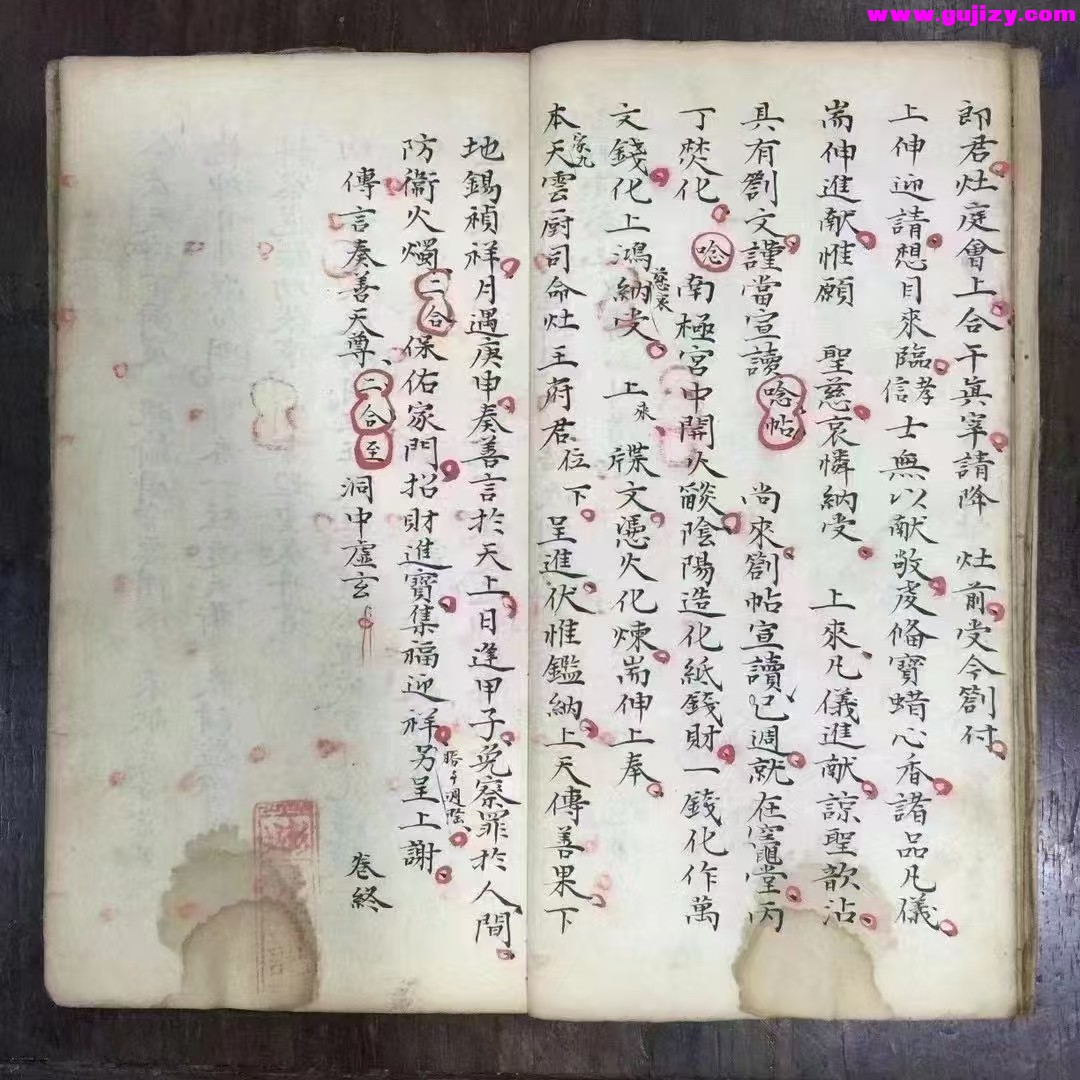 www.gujizy.com
郎君灶庭會上合干真宰請降 灶前受今劄付
上伸迎請想目來臨孝信士無以献敬虔俻寶蜡心香諸品凢儀
耑伸進献惟願 聖慈哀憐納受 上來凢儀進献諒聖歆沾
具有劄文謹當宣讀唸帖 尚來劄帖宣讀已週就在竈堂丙
丁焚化 唸 南極宮中開火燄陰陽造化紙錢財一錢化作萬
文錢化上鴻納受 上來 牒文憑火化煉耑伸上奉
本家九天雲厨司命灶王府君位下 呈進伏惟鑑納上天傳善果下
地錫禎祥月遇庚申奏善言於天上日逢甲子免察罪於人間
防衞火燭二合保佑家門招財進寶集福迎祥另呈上謝
傳言奏善天尊二合至 洞中虛玄
卷終